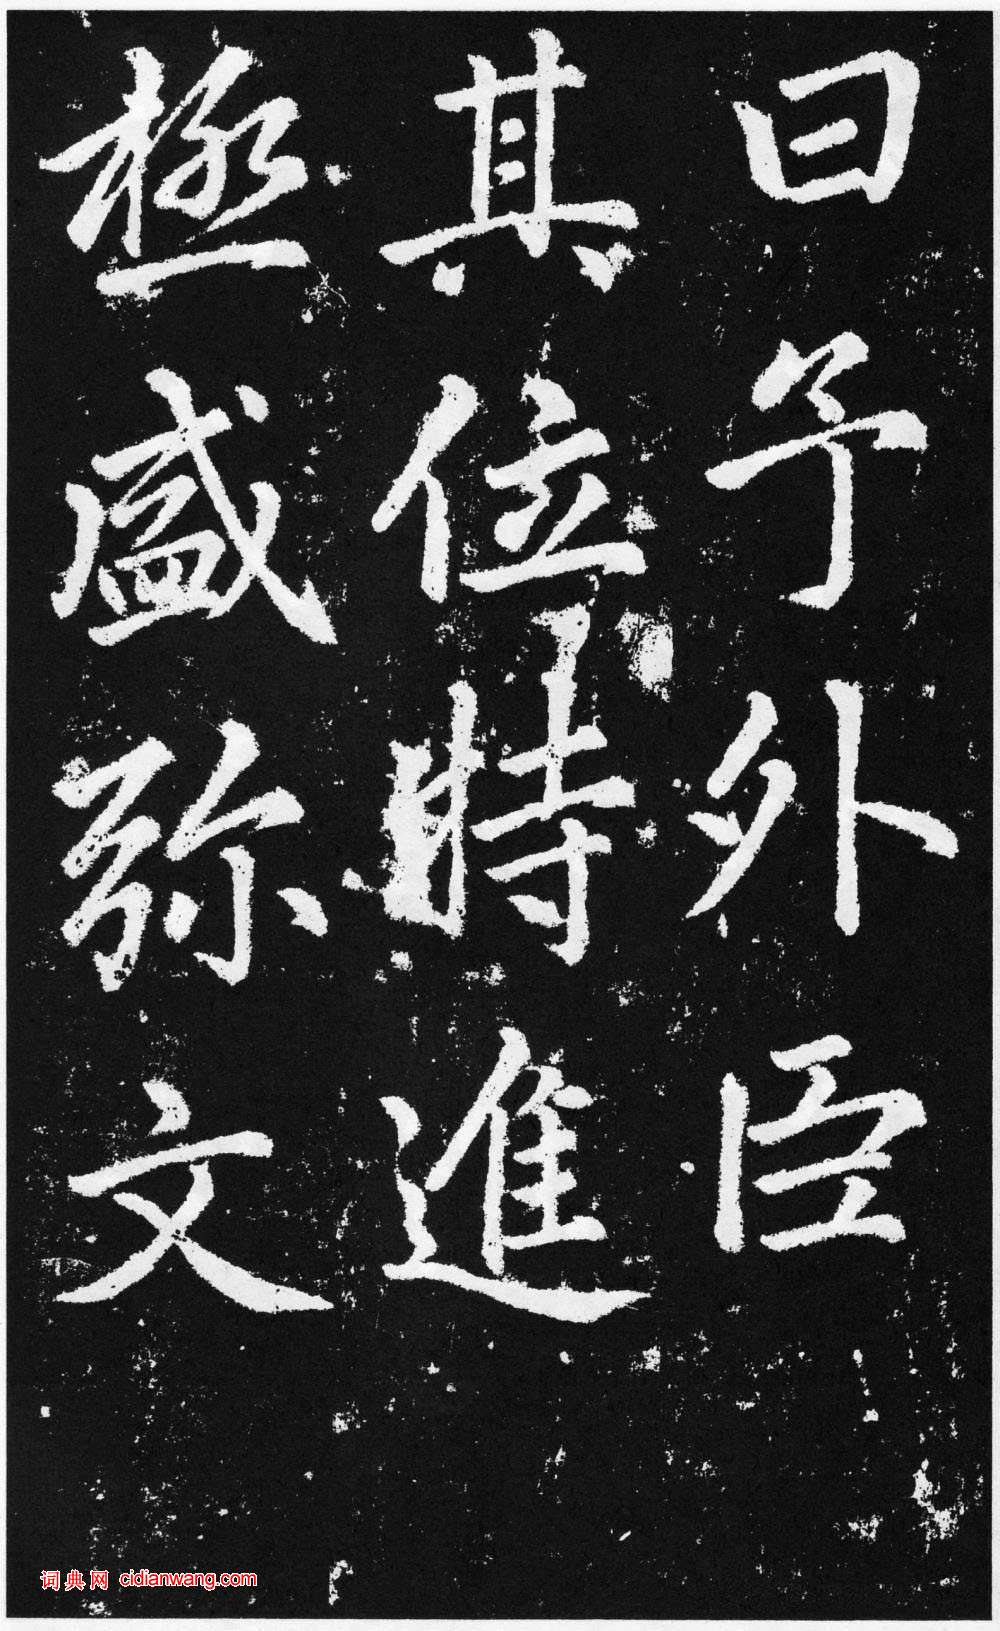 曰予外臣
其位時進
極盛弥文
词典网 cidianwang.com